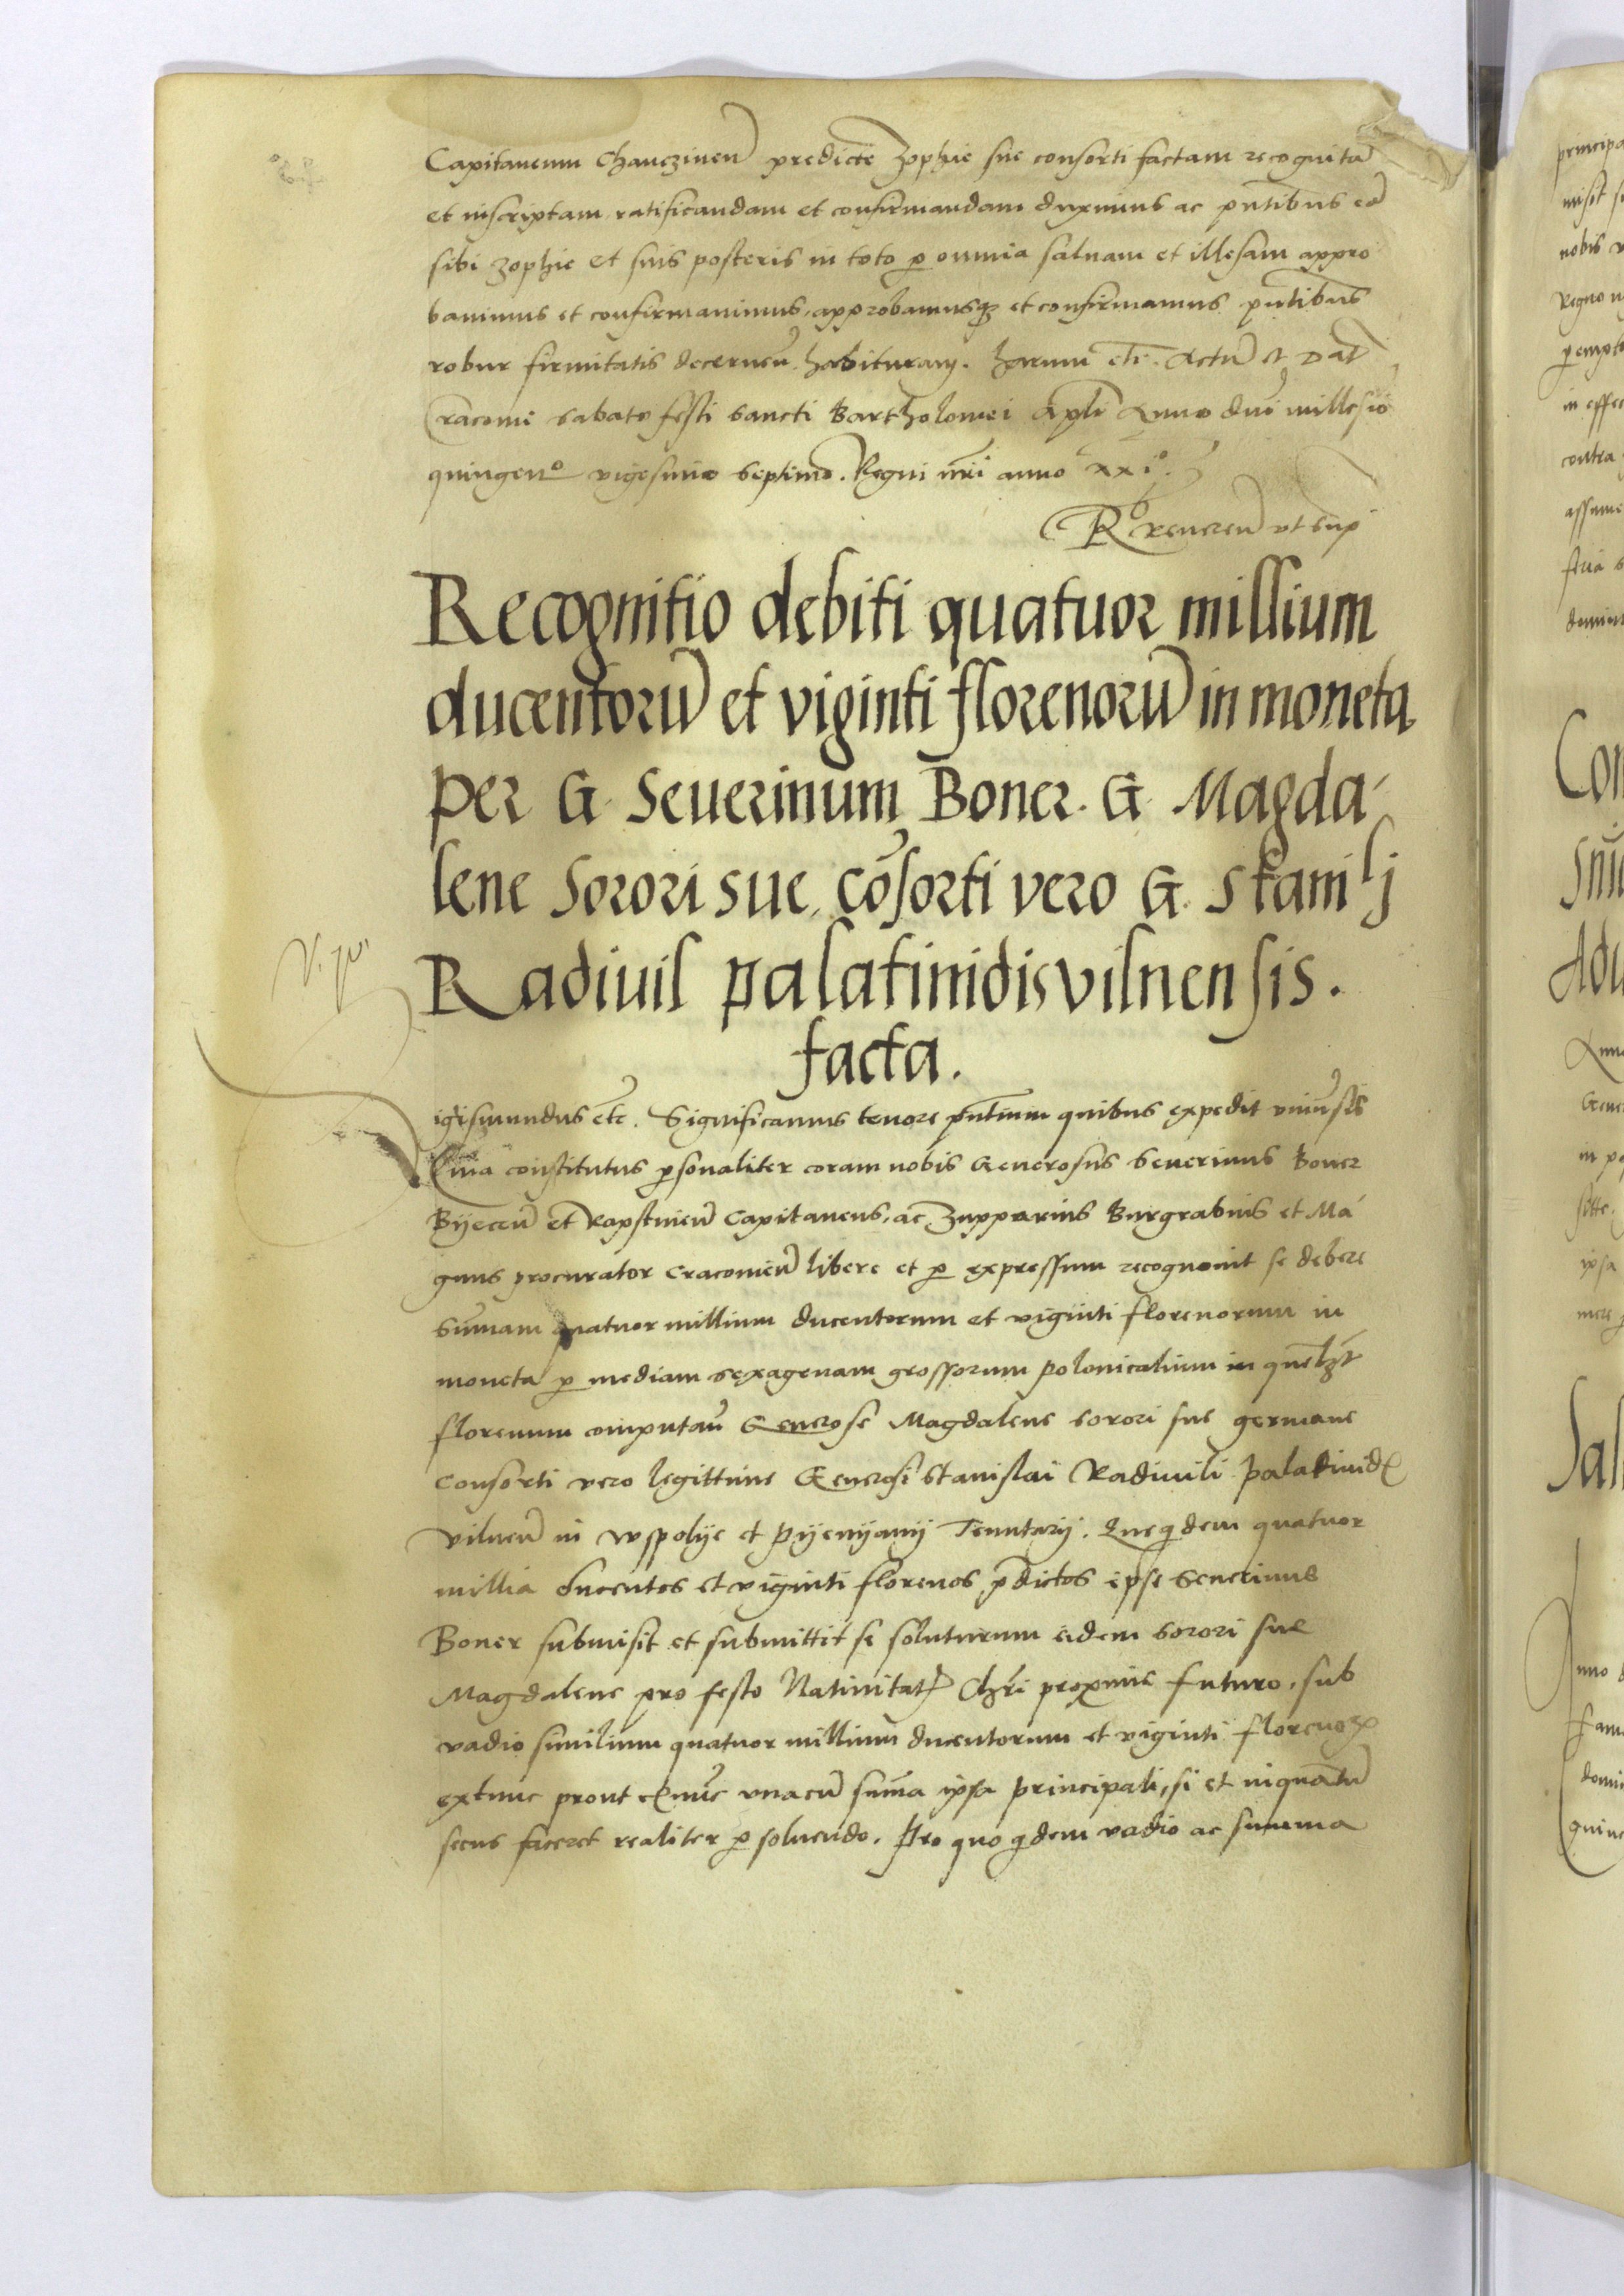 Capitaneum Chanczinen̄ predicte Zophie sue consorti factam recognitā
et inscriptam ratificandam et confirmandam duximus ac pn̄tibus eā
sibi Zophie et suis posteris in toto ꝑ omnia saluam et illesam appro
bauimus et confirmauimus, approbamusqꝫ et confirmamus pn̄tibus
robur firmitatis decernen̄ habituram. Harum etc̄. Actū et Dat̄
Cracouie sabato festi sancti Bartholomei Apl̄i Anno dn̄i millesīo
quingen° vigesimo septimo. Regni nr̄i anno xxi°.
Rº reueren̄ vt sup̄
Recognitio debiti quatuor millium
ducentorū et viginti florenorū in moneta
per G. Seuerinum Boner. G. Magda-
lene Sorori sue, cōsorti vero G. Stani lj
Radiuil palatinidis vilnensis.
facta.
igismundus etc̄. Significamus tenore pn̄tium quibus expedit vniuersis
Quia constitutus ꝑsonaliter coram nobis Generosus Seuerinus Boner
Byecen̄ et Rapstinen̄ Capitaneus, ac Zupparius Burgrabius et Ma-
gnus procurator Cracouien̄ libere et ꝑ expressum recognouit se debere
Sum̄am quatuor millium ducentorum et viginti florenorum in
moneta ꝑ mediam sexagenam grossorum polonicalium in quel̄ꝫt
florenum computan̄ Generose Magdalene sorori sue germane
Consorti vero legittime Generosi Stanislai Radiuili Palatinid
Vilnen̄ in Wspolye et Pyenyany Tenutarij. Que qͥdem quatuor
millia ducentos et viginti florenos p̄dictos ipse Seuerinus
Boner submisit et submittit se soluturum eidem sorori sue
Magdalene pro festo Natiuitat Chr̄i proxime futuro, sub
vadio similium quatuor millium ducentorum et viginti florenoꝝ
extunc prout exnūc vnacū sum̄a ipsa principali, si et inquantū
secus faceret realiter ꝑsoluendo. Pro quo qͥdem vadio ac summa